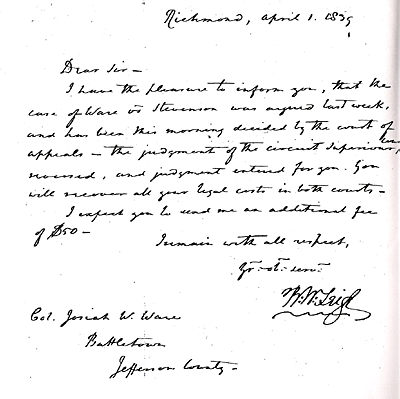 Richmond, April 1. 1839
Dear Sir –
I have the pleasure to inform you, that the
case of Ware vs Stevenson was argued last week,
and has been this morning decided by the court of
appeals – the judgment of the circuit superiour court
reversed, and judgment entered for you. You
will recover all your legal costs in both courts –
I expect you to send me an additional fee
of $50 –
I remain with all respect,
Yr. ob. servt
B. W. Leigh
Col. Josiah W. Ware
Battletown
Jefferson County –